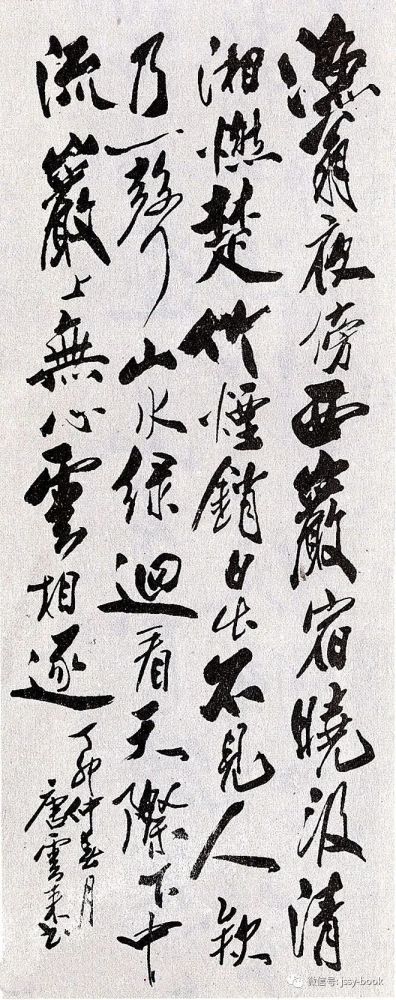 漁翁夜傍西巖宿曉汲清
湘燃楚竹煙銷日出不見人欸
乃一聲山水綠迴看天際下中
流巖上無心雲相逐
丁卯仲春月
唐雲來书
微信号: jssy-book